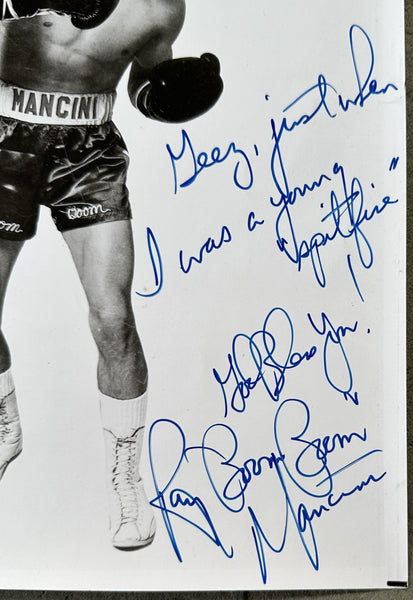 MANCINI
Boom
Boom
Geez, just when
I was a young
"spitfire"!
God Bless You!
Ray "Boom Boom"
Mancini